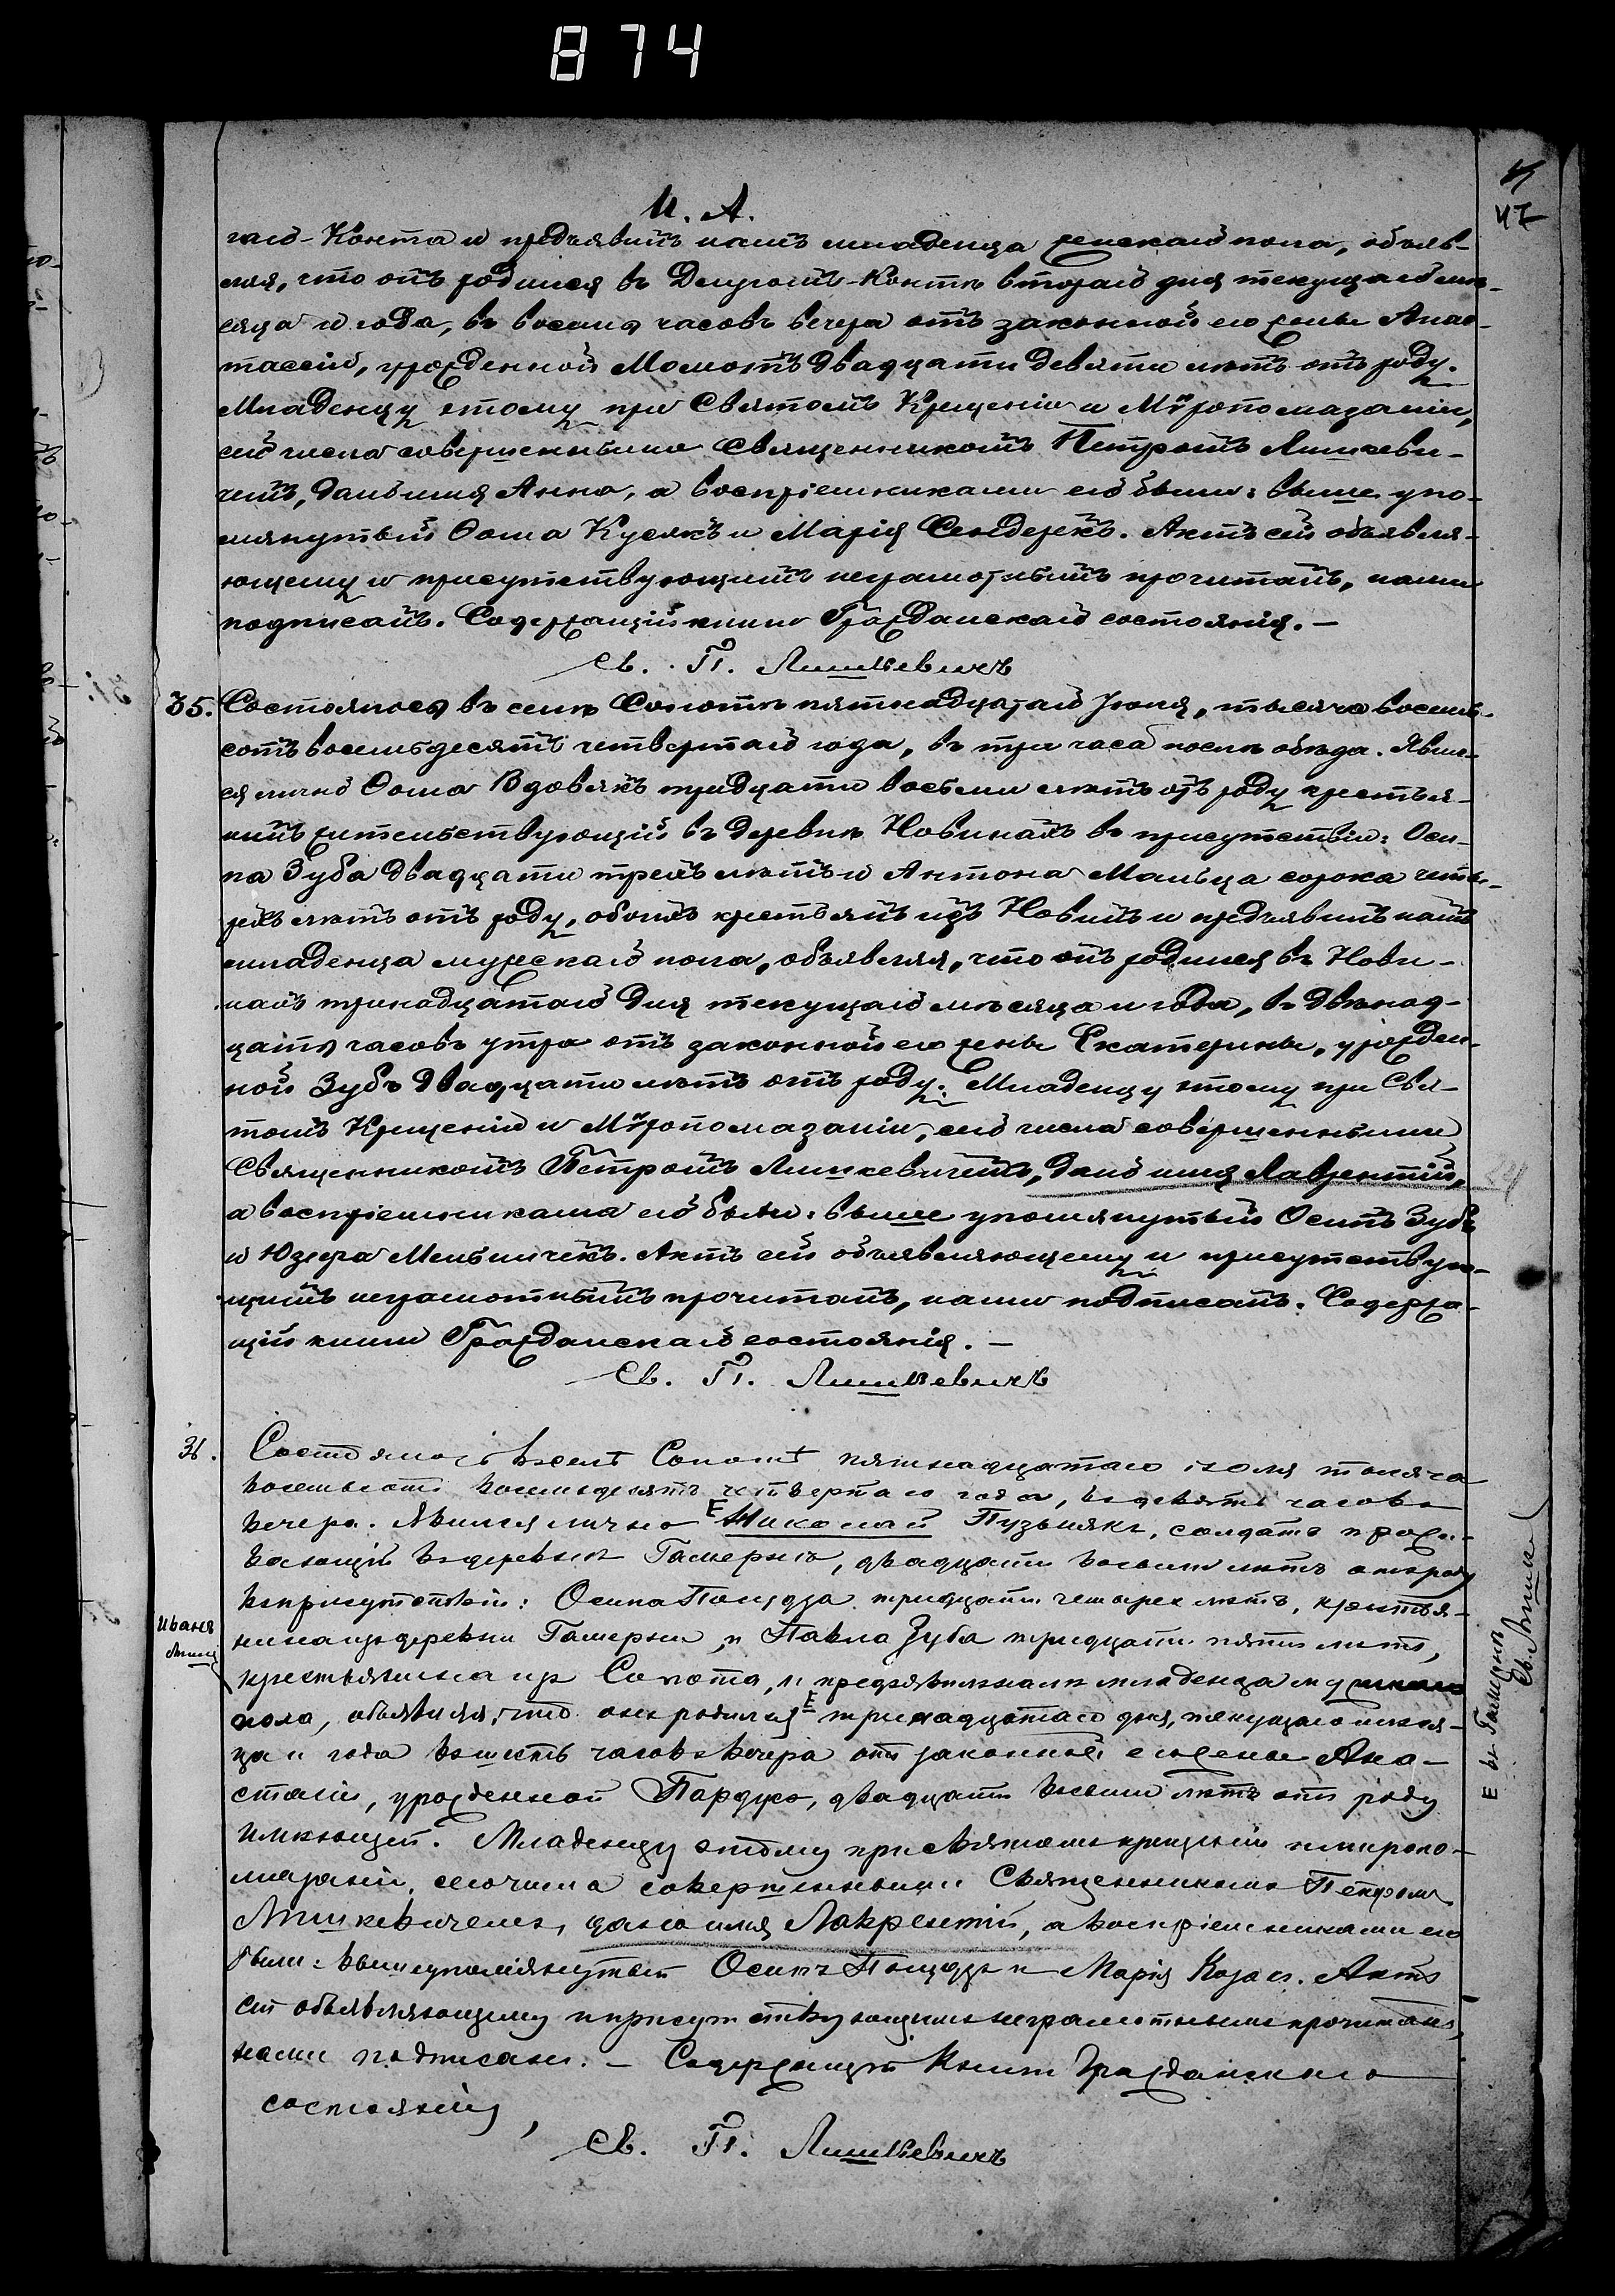 874
И. А.
47
гаго-Конта и предъявилъ намъ младенца женскаго пола, объяв-
ляя, что онъ родился въ Долгомъ-Контѣ втораго дня текущаго мѣ-
сяца и года, въ восемь часовъ вечера отъ законной его жены Анас-
тассіи, урожденной Момотъ двадцати девяти лѣтъ отъ роду.
Младенцу этому при Святомъ Крещеніи и Мѵропомазаніи,
сего числа совершенными Священникомъ Петромъ Лишкеви-
чемъ, дано имя Анна, а воспріемниками его были: выше упо-
мянутый Ѳома Кусякъ и Марія Сендерекъ. Актъ сей объявля-
ющему и присутствующимъ неграмотнымъ прочитанъ, нами
подписанъ. Содержащій книги Гражданскаго состоянія. —
Св. П. Лишкевичъ
35. Состоялось въ селѣ Сопотѣ пятнадцатаго Іюня, тысяча восемь-
сотъ восемьдесятъ четвертаго года, въ три часа послѣ обѣда. Явил-
ся лично Ѳома Вдовякъ тридцати восьми лѣтъ отъ роду крестья-
нинъ жительствующій въ деревнѣ Новинахъ въ присутствіи: Оси-
па Зуба двадцати трехъ лѣтъ и Антона Мальца сорока четы-
рехъ лѣтъ отъ роду, обоихъ крестьянъ изъ Новинъ и предъявилъ намъ
младенца мужескаго пола, объявляя, что онъ родился въ Нови-
нахъ тринадцатаго дня текущаго мѣсяца и года, въ двѣнад-
цать часовъ утра отъ законной его жены Екатерины, урожден-
ной Зубъ двадцати лѣтъ отъ роду. Младенцу этому при Свя-
томъ Крещеніи и Мѵропомазаніи, сего числа совершенными
Священникомъ Петромъ Лишкевичемъ, дано имя Лаврентій,
а воспріемниками его были: выше упомянутый Осипъ Зубъ
и Юзефа Мельничекъ. Актъ сей объявляющему и присутствую-
щимъ неграмотнымъ прочитанъ, нами подписанъ. Содержа-
щій книги Гражданскаго состоянія. —
Св. П. Лишкевичъ
36. Состоялось въ селѣ Сопотѣ пятнадцатаго іюля тысяча
восемьсотъ восемьдесятъ четвертаго года, въ девять часовъ
вечера. Явился лично Николай Пузьнякъ, солдатъ прожи-
вающій въ деревнѣ Гамернѣ, двадцати восьми лѣтъ отъ роду
въ присутствіи: Осипа тридцати четырехъ лѣтъ, крестья-
нина изъ деревни Гамерни, и Павла Зуба тридцати пяти лѣтъ,
Ивана
крестьянина изъ Сопота, и предъявилъ намъ младенца мужескаго
пола, объявляя, что онъ родился Е тринадцатаго дня, текущаго мѣся-
ца и года въ шесть часовъ вечера отъ законной его жены Ана-
стасіи, урожденной двадцати восьми лѣтъ отъ роду
имѣющей. Младенцу этому при Святомъ крещеніи и миропо-
мазаніи, сего числа совершенными Священникомъ Петромъ
Лишкевичемъ, дано имя Лаврентій, а воспріемниками его
были: вышеупомянутый Осипъ и Марія Козакъ. Актъ
сей объявляющему и присутствующимъ неграмотнымъ прочитанъ,
нами подписанъ. — Содержащій Книги Гражданскаго
состоянія,
Св. П. Лишкевичъ
Е въ Гамернѣ